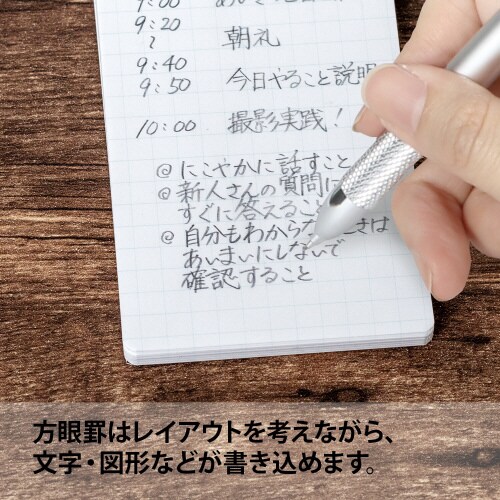 9:00
9:20
~
朝礼
9:40
9:50 今日やること説明
10:00 撮影実践!
@にこやかに話すこと
@新人さんの質問に
すぐに答えること
@自分もわからな きは
あいまいにしないで
確認すること
方眼罫はレイアウトを考えながら、
文字・図形などが書き込めます。